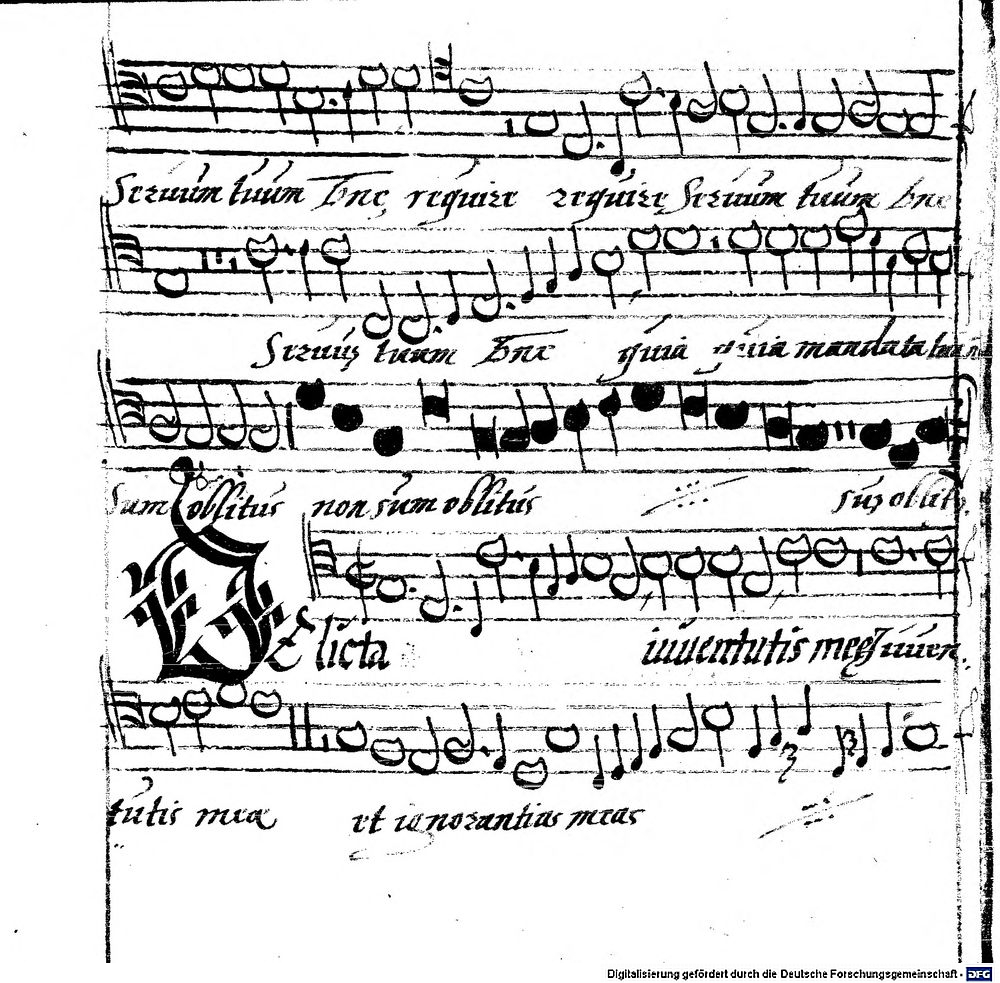 Seruum tuum Dne require require Seruum tuum Dne
Seruum tuum Dne quia quia mandata tua n
Sum oblitus non sum oblitus sum oblitus
DElicta iuuentutis meę Iuuen
tutis mea et ignorantias meas
Digitalisierung gefördert durch die Deutsche Forschungsgemeinschaft - DFG